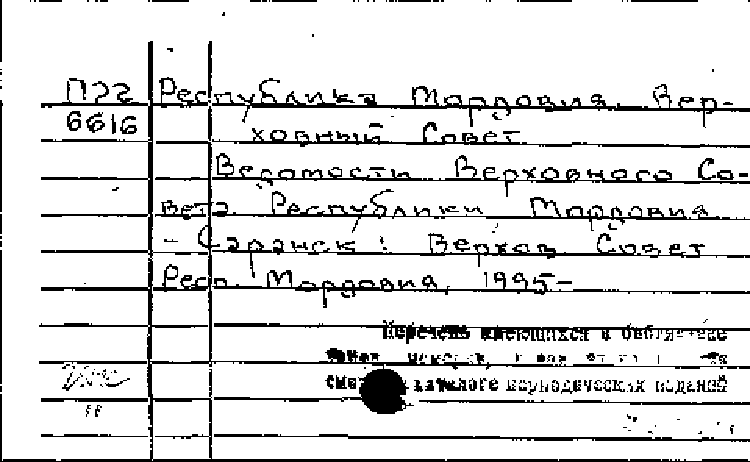 П22 Республика Мордовия. Вер-
6616 ховный Совет
Ведомости Верховного Со-
вета Республики Мордовия
- Саранск: Верхов. Совет
Респ. Мордовия, 1995-
Перечень имеющихся в библиотеке
каталоге периодических изданий